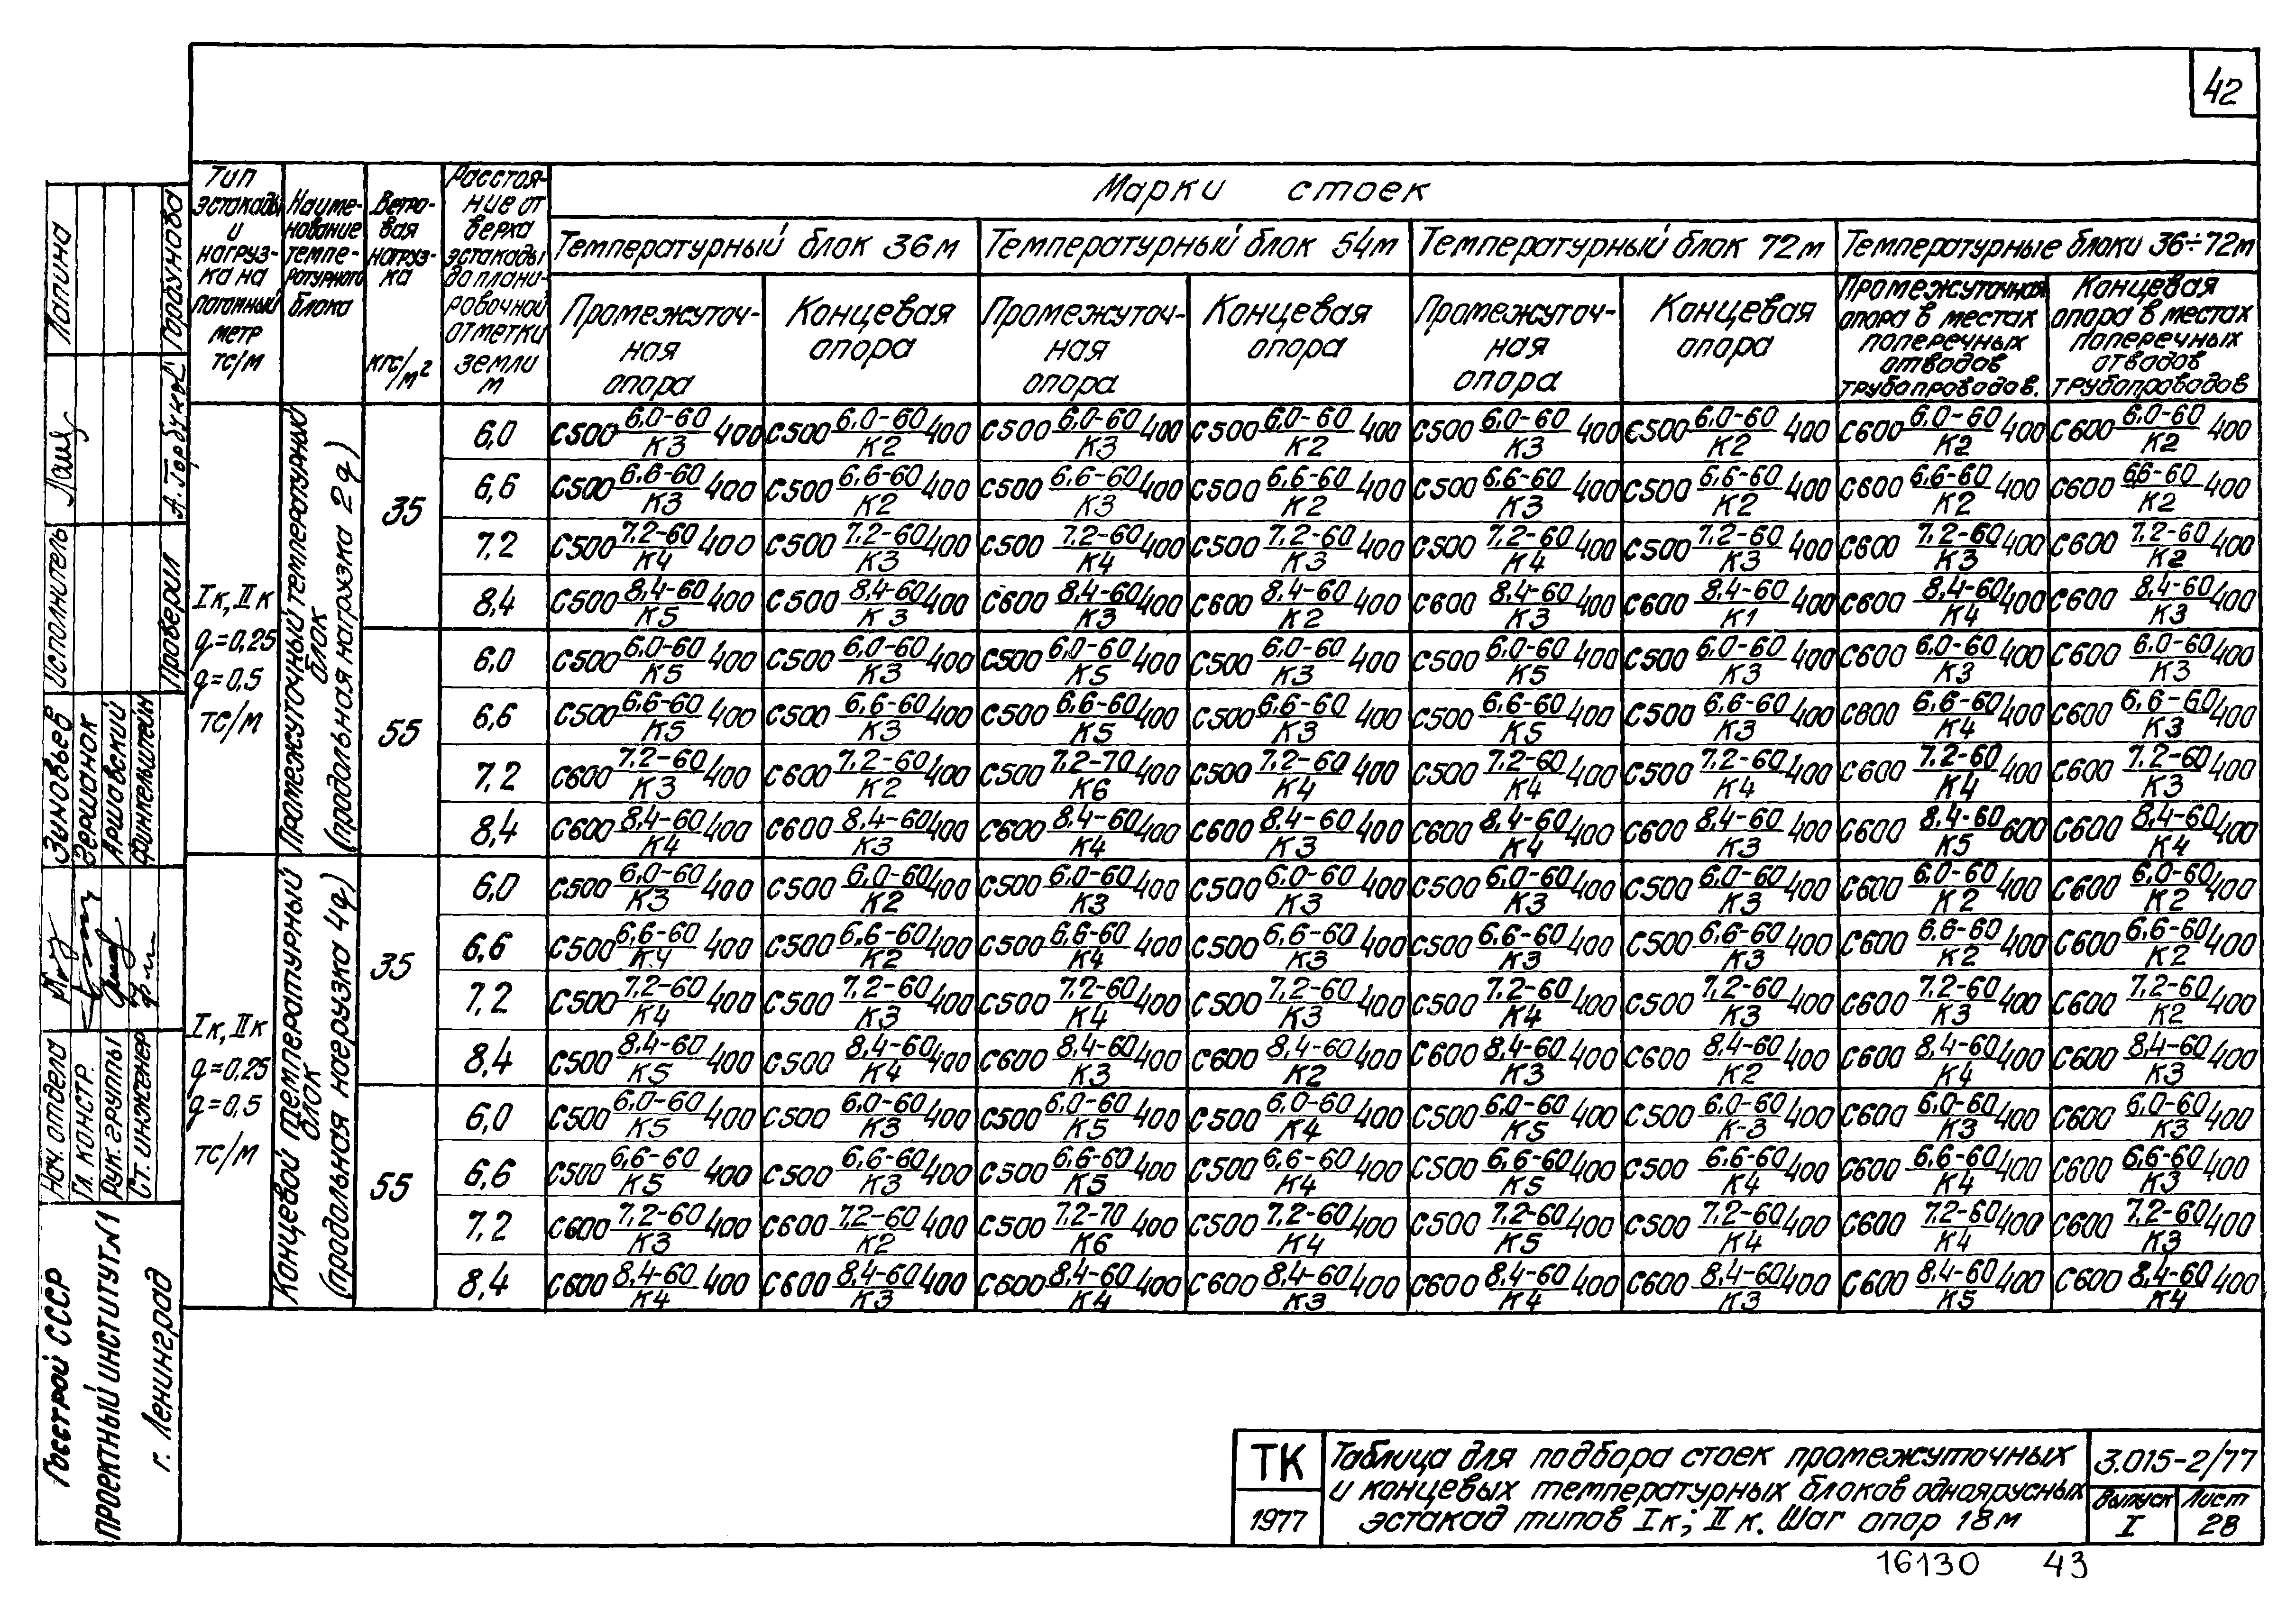 42
Тип эстакады и нагруз-ка на погонный метр тс/м
Наиме-нование темпе-ратурного блока
Ветро-вая нагруз-ка кгс/м²
Расстоя-ние от верха эстакады до плани-ровочной отметки земли м
Марки стоек
Температурный блок 36м
Температурный блок 54м
Температурный блок 72м
Температурные блоки 36÷72м
Промежуточ-ная опора
Концевая опора
Промежуточ-ная опора
Концевая опора
Промежуточ-ная опора
Концевая опора
Промежуточная опора в местах поперечных отводов трубопроводов.
Концевая опора в местах поперечных отводов трубопроводов
Iк, IIк
q=0,25
q=0,5
тс/м
Промежуточный температурный блок (продольная нагрузка 2q)
35
6,0 С500 6,0-60/К3 400 С500 6,0-60/К2 400 С500 6,0-60/К3 400 С500 6,0-60/К2 400 С500 6,0-60/К3 400 С500 6,0-60/К2 400 С600 6,0-60/К2 400 С600 6,0-60/К2 400
6,6 С500 6,6-60/К3 400 С500 6,6-60/К2 400 С500 6,6-60/К3 400 С500 6,6-60/К2 400 С500 6,6-60/К3 400 С500 6,6-60/К2 400 С600 6,6-60/К2 400 С600 6,6-60/К2 400
7,2 С500 7,2-60/К4 400 С500 7,2-60/К3 400 С500 7,2-60/К4 400 С500 7,2-60/К3 400 С500 7,2-60/К4 400 С500 7,2-60/К3 400 С600 7,2-60/К3 400 С600 7,2-60/К2 400
8,4 С500 8,4-60/К5 400 С500 8,4-60/К3 400 С600 8,4-60/К3 400 С600 8,4-60/К2 400 С600 8,4-60/К3 400 С600 8,4-60/К1 400 С600 8,4-60/К4 400 С600 8,4-60/К3 400
55
6,0 С500 6,0-60/К5 400 С500 6,0-60/К3 400 С500 6,0-60/К5 400 С500 6,0-60/К3 400 С500 6,0-60/К5 400 С500 6,0-60/К3 400 С600 6,0-60/К3 400 С600 6,0-60/К3 400
6,6 С500 6,6-60/К5 400 С500 6,6-60/К3 400 С500 6,6-60/К5 400 С500 6,6-60/К3 400 С500 6,6-60/К5 400 С500 6,6-60/К3 400 С600 6,6-60/К4 400 С600 6,6-60/К3 400
7,2 С600 7,2-60/К3 400 С600 7,2-60/К2 400 С500 7,2-70/К6 400 С500 7,2-60/К4 400 С500 7,2-60/К4 400 С500 7,2-60/К4 400 С600 7,2-60/К4 400 С600 7,2-60/К3 400
8,4 С600 8,4-60/К4 400 С600 8,4-60/К3 400 С600 8,4-60/К4 400 С600 8,4-60/К3 400 С600 8,4-60/К4 400 С600 8,4-60/К3 400 С600 8,4-60/К5 600 С600 8,4-60/К4 400
Iк, IIк
q=0,25
q=0,5
тс/м
Концевой температурный блок (продольная нагрузка 4q)
35
6,0 С500 6,0-60/К3 400 С500 6,0-60/К2 400 С500 6,0-60/К3 400 С500 6,0-60/К3 400 С500 6,0-60/К3 400 С500 6,0-60/К3 400 С600 6,0-60/К2 400 С600 6,0-60/К2 400
6,6 С500 6,6-60/К4 400 С500 6,6-60/К2 400 С500 6,6-60/К4 400 С500 6,6-60/К3 400 С500 6,6-60/К3 400 С500 6,6-60/К3 400 С600 6,6-60/К2 400 С600 6,6-60/К2 400
7,2 С500 7,2-60/К4 400 С500 7,2-60/К3 400 С500 7,2-60/К4 400 С500 7,2-60/К3 400 С500 7,2-60/К4 400 С500 7,2-60/К3 400 С600 7,2-60/К3 400 С600 7,2-60/К2 400
8,4 С500 8,4-60/К5 400 С500 8,4-60/К4 400 С600 8,4-60/К3 400 С600 8,4-60/К2 400 С600 8,4-60/К3 400 С600 8,4-60/К2 400 С600 8,4-60/К4 400 С600 8,4-60/К3 400
55
6,0 С500 6,0-60/К5 400 С500 6,0-60/К3 400 С500 6,0-60/К5 400 С500 6,0-60/К4 400 С500 6,0-60/К5 400 С500 6,0-60/К-3 400 С600 6,0-60/К3 400 С600 6,0-60/К3 400
6,6 С500 6,6-60/К5 400 С500 6,6-60/К3 400 С500 6,6-60/К5 400 С500 6,6-60/К4 400 С500 6,6-60/К5 400 С500 6,6-60/К4 400 С600 6,6-60/К4 400 С600 6,6-60/К3 400
7,2 С600 7,2-60/К3 400 С600 7,2-60/К2 400 С500 7,2-70/К6 400 С500 7,2-60/К4 400 С500 7,2-60/К5 400 С500 7,2-60/К4 400 С600 7,2-60/К4 400 С600 7,2-60/К3 400
8,4 С600 8,4-60/К4 400 С600 8,4-60/К3 400 С600 8,4-60/К4 400 С600 8,4-60/К3 400 С600 8,4-60/К4 400 С600 8,4-60/К3 400 С600 8,4-60/К5 400 С600 8,4-60/К4 400
Госстрой СССР
Проектный институт №1
г. Ленинград
Нач. отдела Зиновьев
Гл. констр. Зершанок
Рук. группы Аршавский
Ст. инженер Финкельштейн
Исполнитель Лапина
Проверил А. Горбунов Горбунова
ТК
1977
Таблица для подбора стоек промежуточных
и концевых температурных блоков одноярусных
эстакад типов Iк; IIк. Шаг опор 18м
3.015-2/77
Выпуск I
Лист 28
16130 43